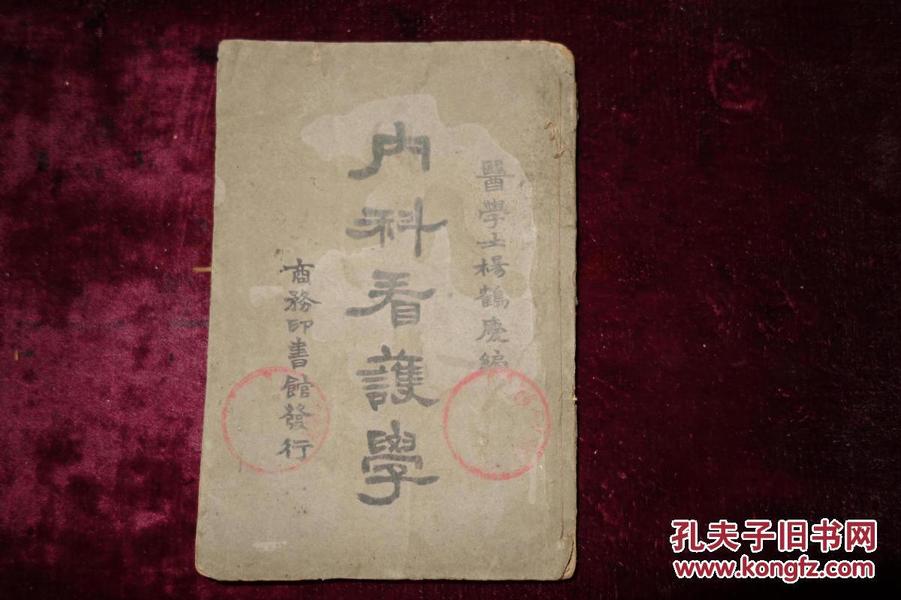 醫學士楊鶴慶編
內科看護學
商務印書館發行
孔夫子旧书网
www.kongfz.com